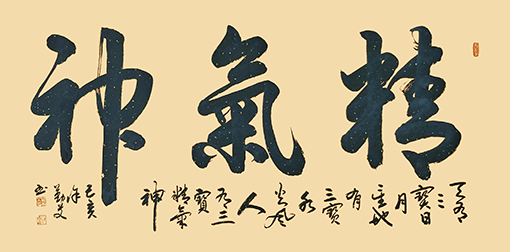 精氣神
天有三
寶日
月
星地
有
三寶
水
火風
人
有三
寶
精氣
神
己亥
年
書